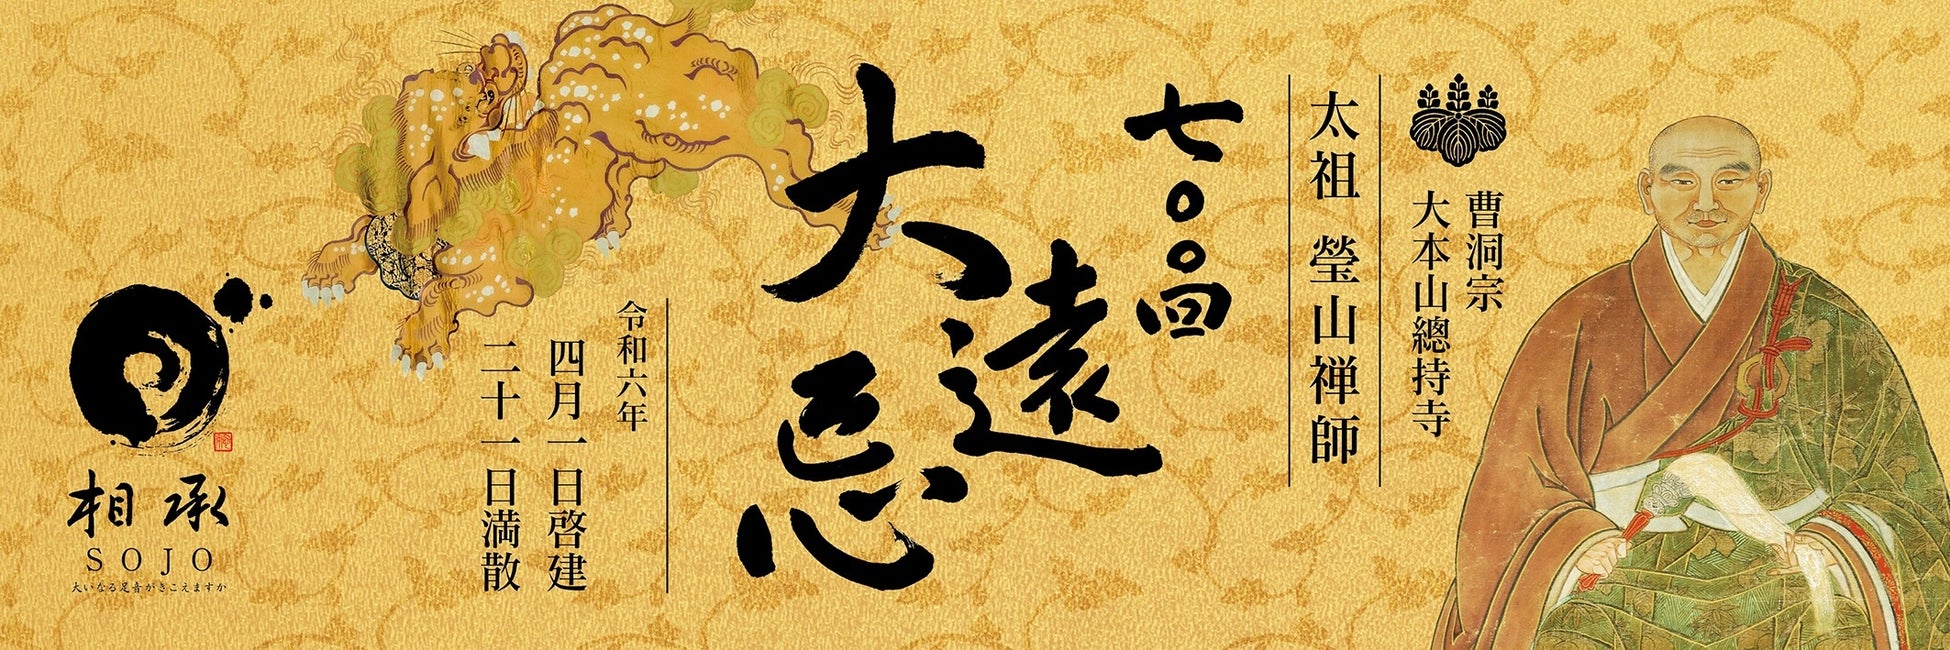 曹洞宗
大本山總持寺
太祖 瑩山禅師
七〇〇回
大遠忌
令和六年
四月一日啓建
二十一日満散
相承
SOJO
大いなる足音がきこえますか